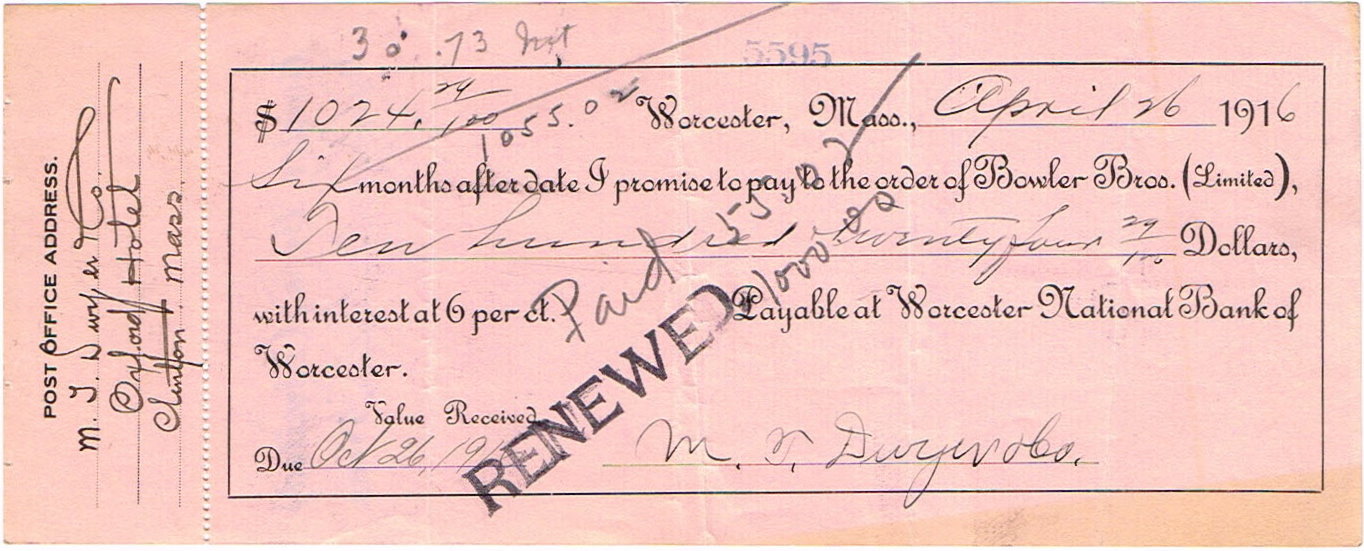 POST OFFICE ADDRESS.
M. T. Dwyer & Co.
Oxford Hotel
Clinton Mass.
30.73 Int
5595
$ 1024. 29/100 Worcester, Mass., April 26 1916
1055.02
Six months after date I promise to pay to the order of Bowler Bros. (Limited),
Ten hundred twenty four 29/100 Dollars,
with interest at 6 per ct. Payable at Worcester National Bank of
Worcester.
Paid 55.02
RENEWED 1000.00
Value Received
Due Oct 26, 19
M. T. Dwyer & Co.